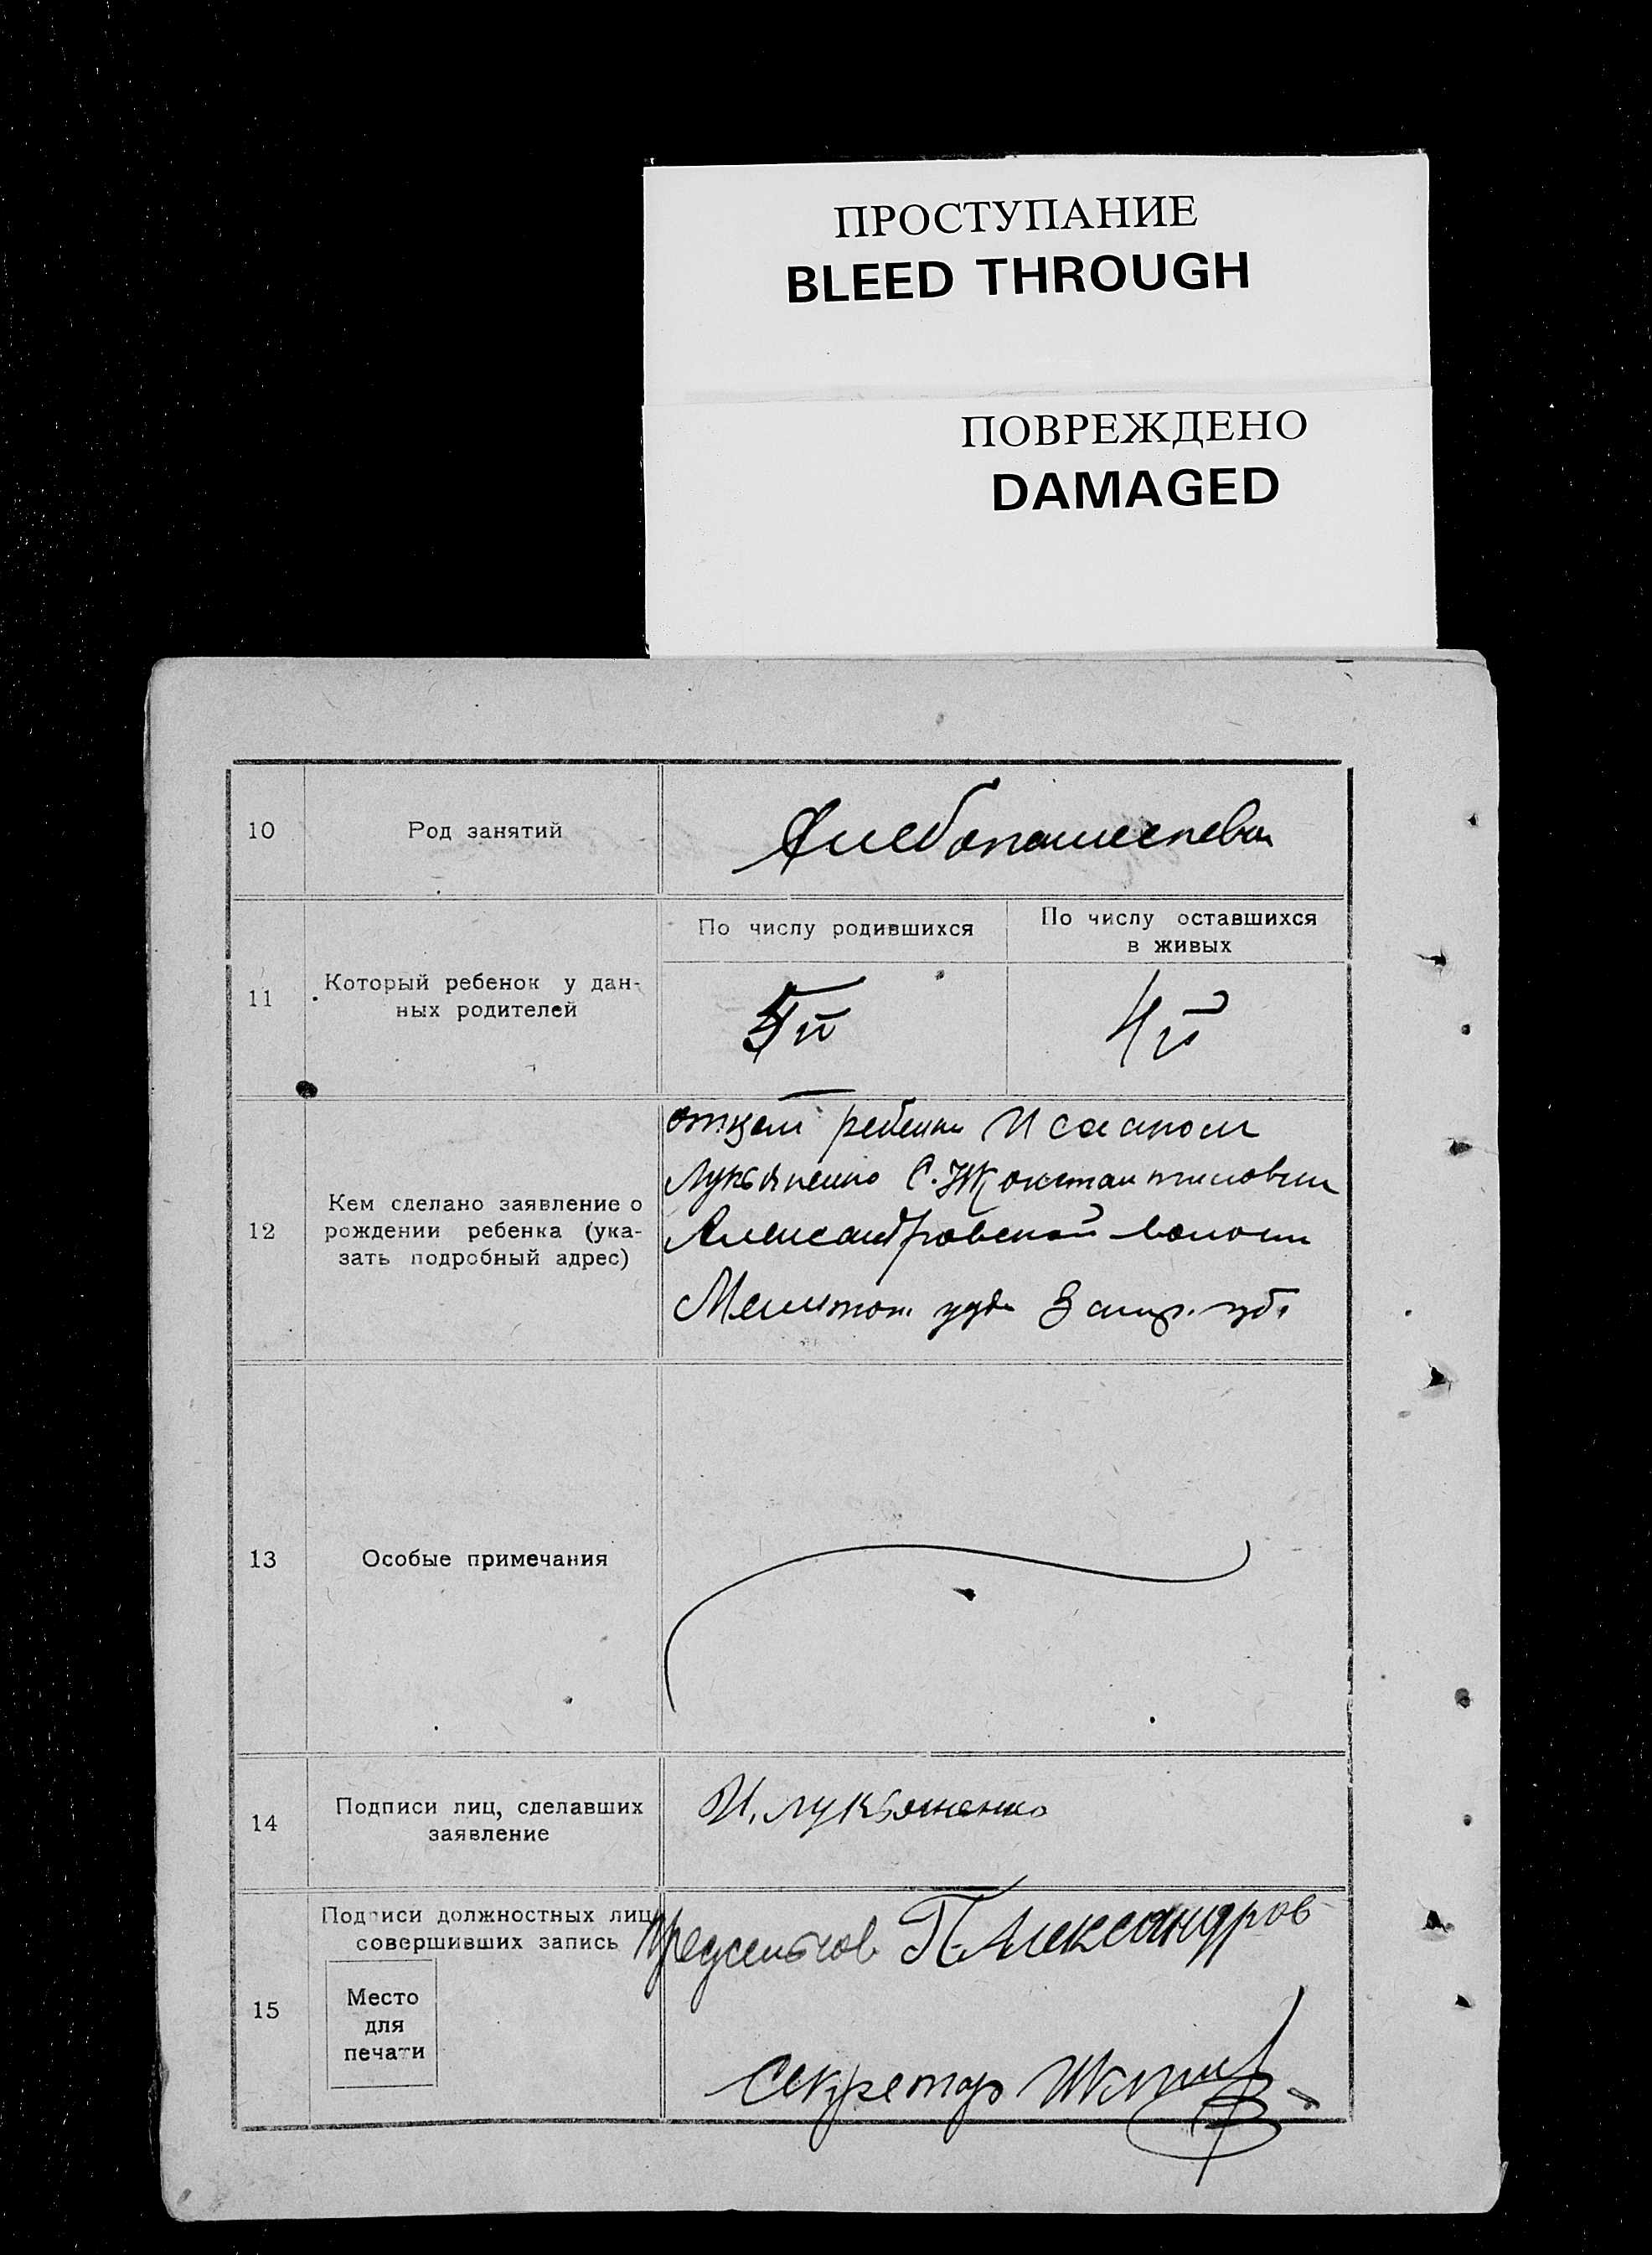 ПРОСТУПАНИЕ
BLEED THROUGH
ПОВРЕЖДЕНО
DAMAGED
10
Род занятий
11
Который ребенок у дан-
ных родителей
По числу родившихся
По числу оставшихся
в живых
5й
4й
12
Кем сделано заявление о
рождении ребенка (ука-
зать подробный адрес)
отцем ребенка Исааком
Лукьяненко С.
Александровской волости
уезда губ.
13
Особые примечания
14
Подписи лиц, сделавших
заявление
И. Лукьяненко
15
Подписи должностных лиц,
совершивших запись
Место
для
печати
П. Александров
Секретарь